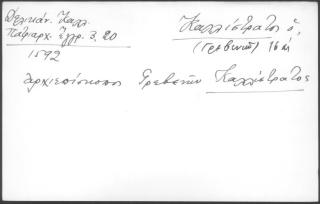 Δελικάν. Καλλ.
Πατριαρχ. Ἔγγρ. 3, 20
1592
Καλλίστρατος ὁ,
(Γρεβενῶν) 16 αἰ
ἀρχιεπίσκοπος Γρεβενῶν Καλλίστρατος